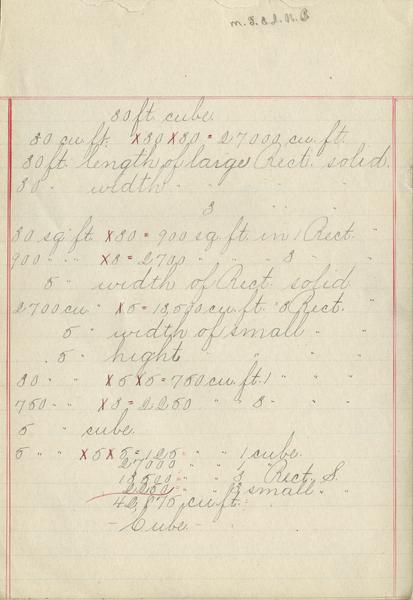 30 ft. cube.
30 cu. ft. X 30 X 30 = 27000 cu. ft.
30 ft. length of large Rect. solid.
30 " width " " " "
3 " " "
30 sq ft X 30 = 900 sq. ft. in 1 Rect. "
900 " " X 3 = 2700 " " 3 " "
5 " width of Rect. solid
2700 cu " X 5 = 13,500 cu. ft. 3 Rect. "
5 " width of small " "
5 " hight " " "
30 " " X 5 X 5 = 750 cu. ft. 1 " " "
750 " " X 3 = 2250 " " 3 " " "
5 " " cube.
5 " " X 5 X 5 = 125 = " " 1 cube.
27000 " " "
13,500 = " " 3 Rect. S.
2250 = " " 3 small " "
42,875 cu. ft. =
- Cube. -